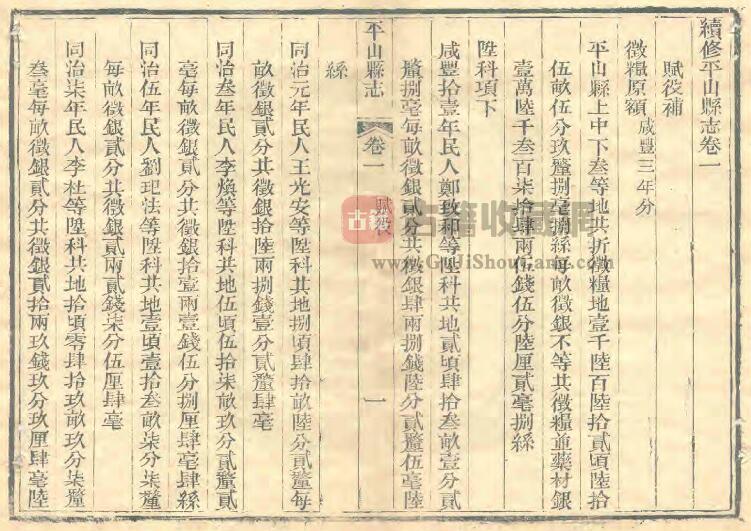 續修平山縣志卷一
賦役補
徵糧原額咸豐三年分
平山縣上中下叁等地共折徵糧地壹千陸百陸拾貳頃陸拾
伍畝伍分玖釐捌毫捌絲每畝徵銀不等共徵糧並藥材銀
壹萬陸千叁百柒拾肆兩伍錢伍分陸厘貳毫捌絲
陞科項下
咸豐拾壹年民人鄭致和等陞科共地貳頃肆拾叁畝壹分貳
釐捌毫每畝徵銀貳分共徵銀肆兩捌錢陸分貳釐伍毫陸
平山縣志 卷一 賦役 一
絲
同治元年民人王光安等陞科共地捌頃肆拾畝陸分貳釐每
畝徵銀貳分共徵銀拾陸兩捌錢壹分貳釐肆毫
同治叁年民人李煥等陞科共地伍頃伍拾柒畝玖分貳釐貳
毫每畝徵銀貳分共徵銀拾壹兩壹錢伍分捌厘肆毫肆絲
同治伍年民人劉玘法等陞科共地壹頃壹拾叁畝柒分柒釐
每畝徵銀貳分共徵銀貳兩貳錢柒分伍厘肆毫
同治柒年民人李杜等陞科共地拾頃零肆拾玖畝玖分柒釐
叁毫每畝徵銀貳分共徵銀貳拾兩玖錢玖分玖厘肆毫陸
古籍
古籍收藏網
www.GuJiShouCang.com